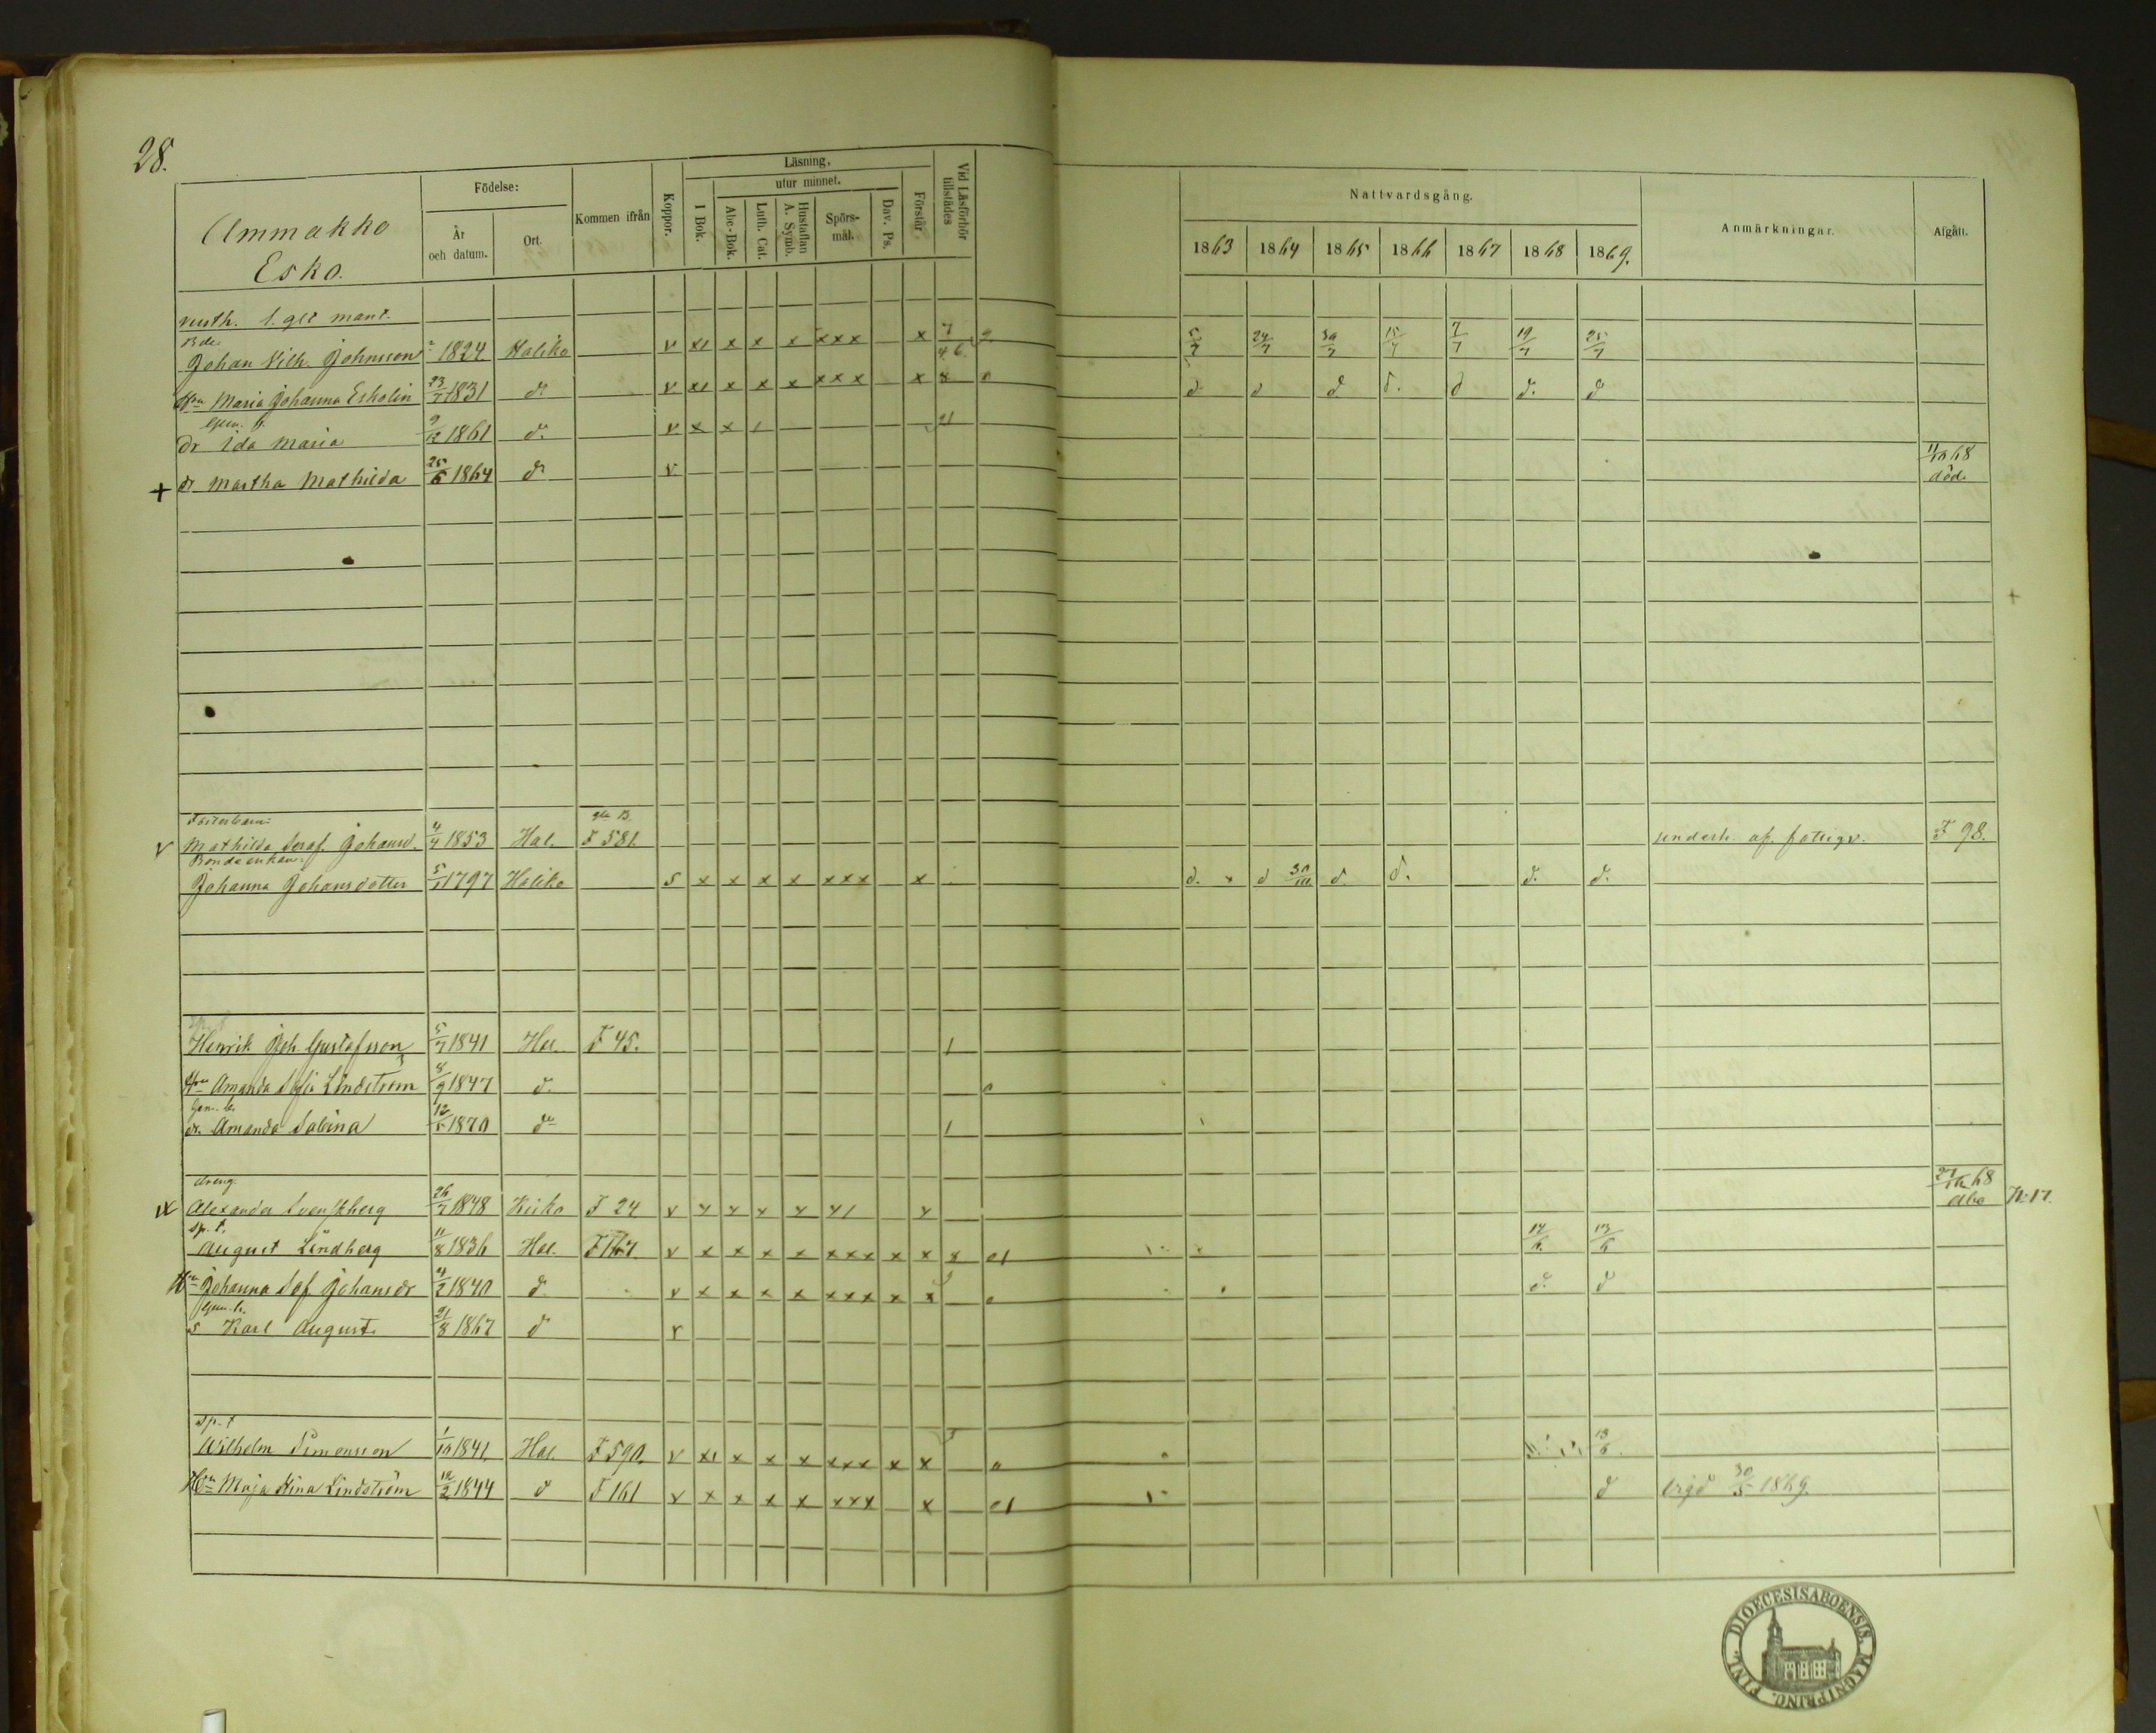 28.
Ammakko
Esko.
Födelse:
År
och datum.
Ort.
Kommen ifrån
Koppor.
Läsning,
utur minnet.
I Bok.
Abc-Bok.
Luth. Cat.
Hustaflan
A. Symb.
Spörs-
mål.
Dav. Ps.
Förstår
Vid Läsförhör
tillstädes
Nattvardsgång.
1863 1864 1865 1866 1867 1868 1869.
Anmärkningar.
Afgått.
mant.
Johan Vilh. Johnsson 1824 Haliko v x1 x x x xxx x 5/7 24/7 30/7 15/7 7/7 19/7 25/7
Hru Maria Johanna Eskolin 23/7 1831 do v x1 x x x xxx x 8 d d d d. d d. d
dr Ida Maria 9/12 1861 do v x x 1
+ dr Martha Mathilda 25/6 1864 do v 11/10 68
död
v Mathilda Seraf. Johansd. 4/4 1853 Hal. F 581. underh. af fattigv. F 98.
Johanna Johansdotter 1797 Haliko s x x x x xxx x d. x d 30/10 d d. d. d.
Henrik Joh. Gustafsson 5/7 1841 Hal. F 45. 1
Hru Amanda Sofia Lindström 8/9 1847 d.
dr. Amanda Sabina 12/5 1870 do 1
dreng.
Alexander Svenskberg 26/7 1848 Kiiko F 24 v 27/10 68
Åbo N:17.
sp. t.
August Lindberg 11/8 1836 Hal. v x x x x xxx x x 8 14/6 13/6
Hru Johanna Sof. Johansdr 4/2 1840 d. v x x x x xxx x x d. d
s Karl August 21/8 1867 d v
sp. t
Wilhelm Simonsson 1/10 1841. Hal. F 590. v x1 x x x xxx x x 13/6
Hru Maja Stina Lindström 12/2 1844 d F 161 v x x x x xxx x d vigd 30/5 1869.
FINL. DIOECESIS ABOENSIS. MAGNI PRINC.